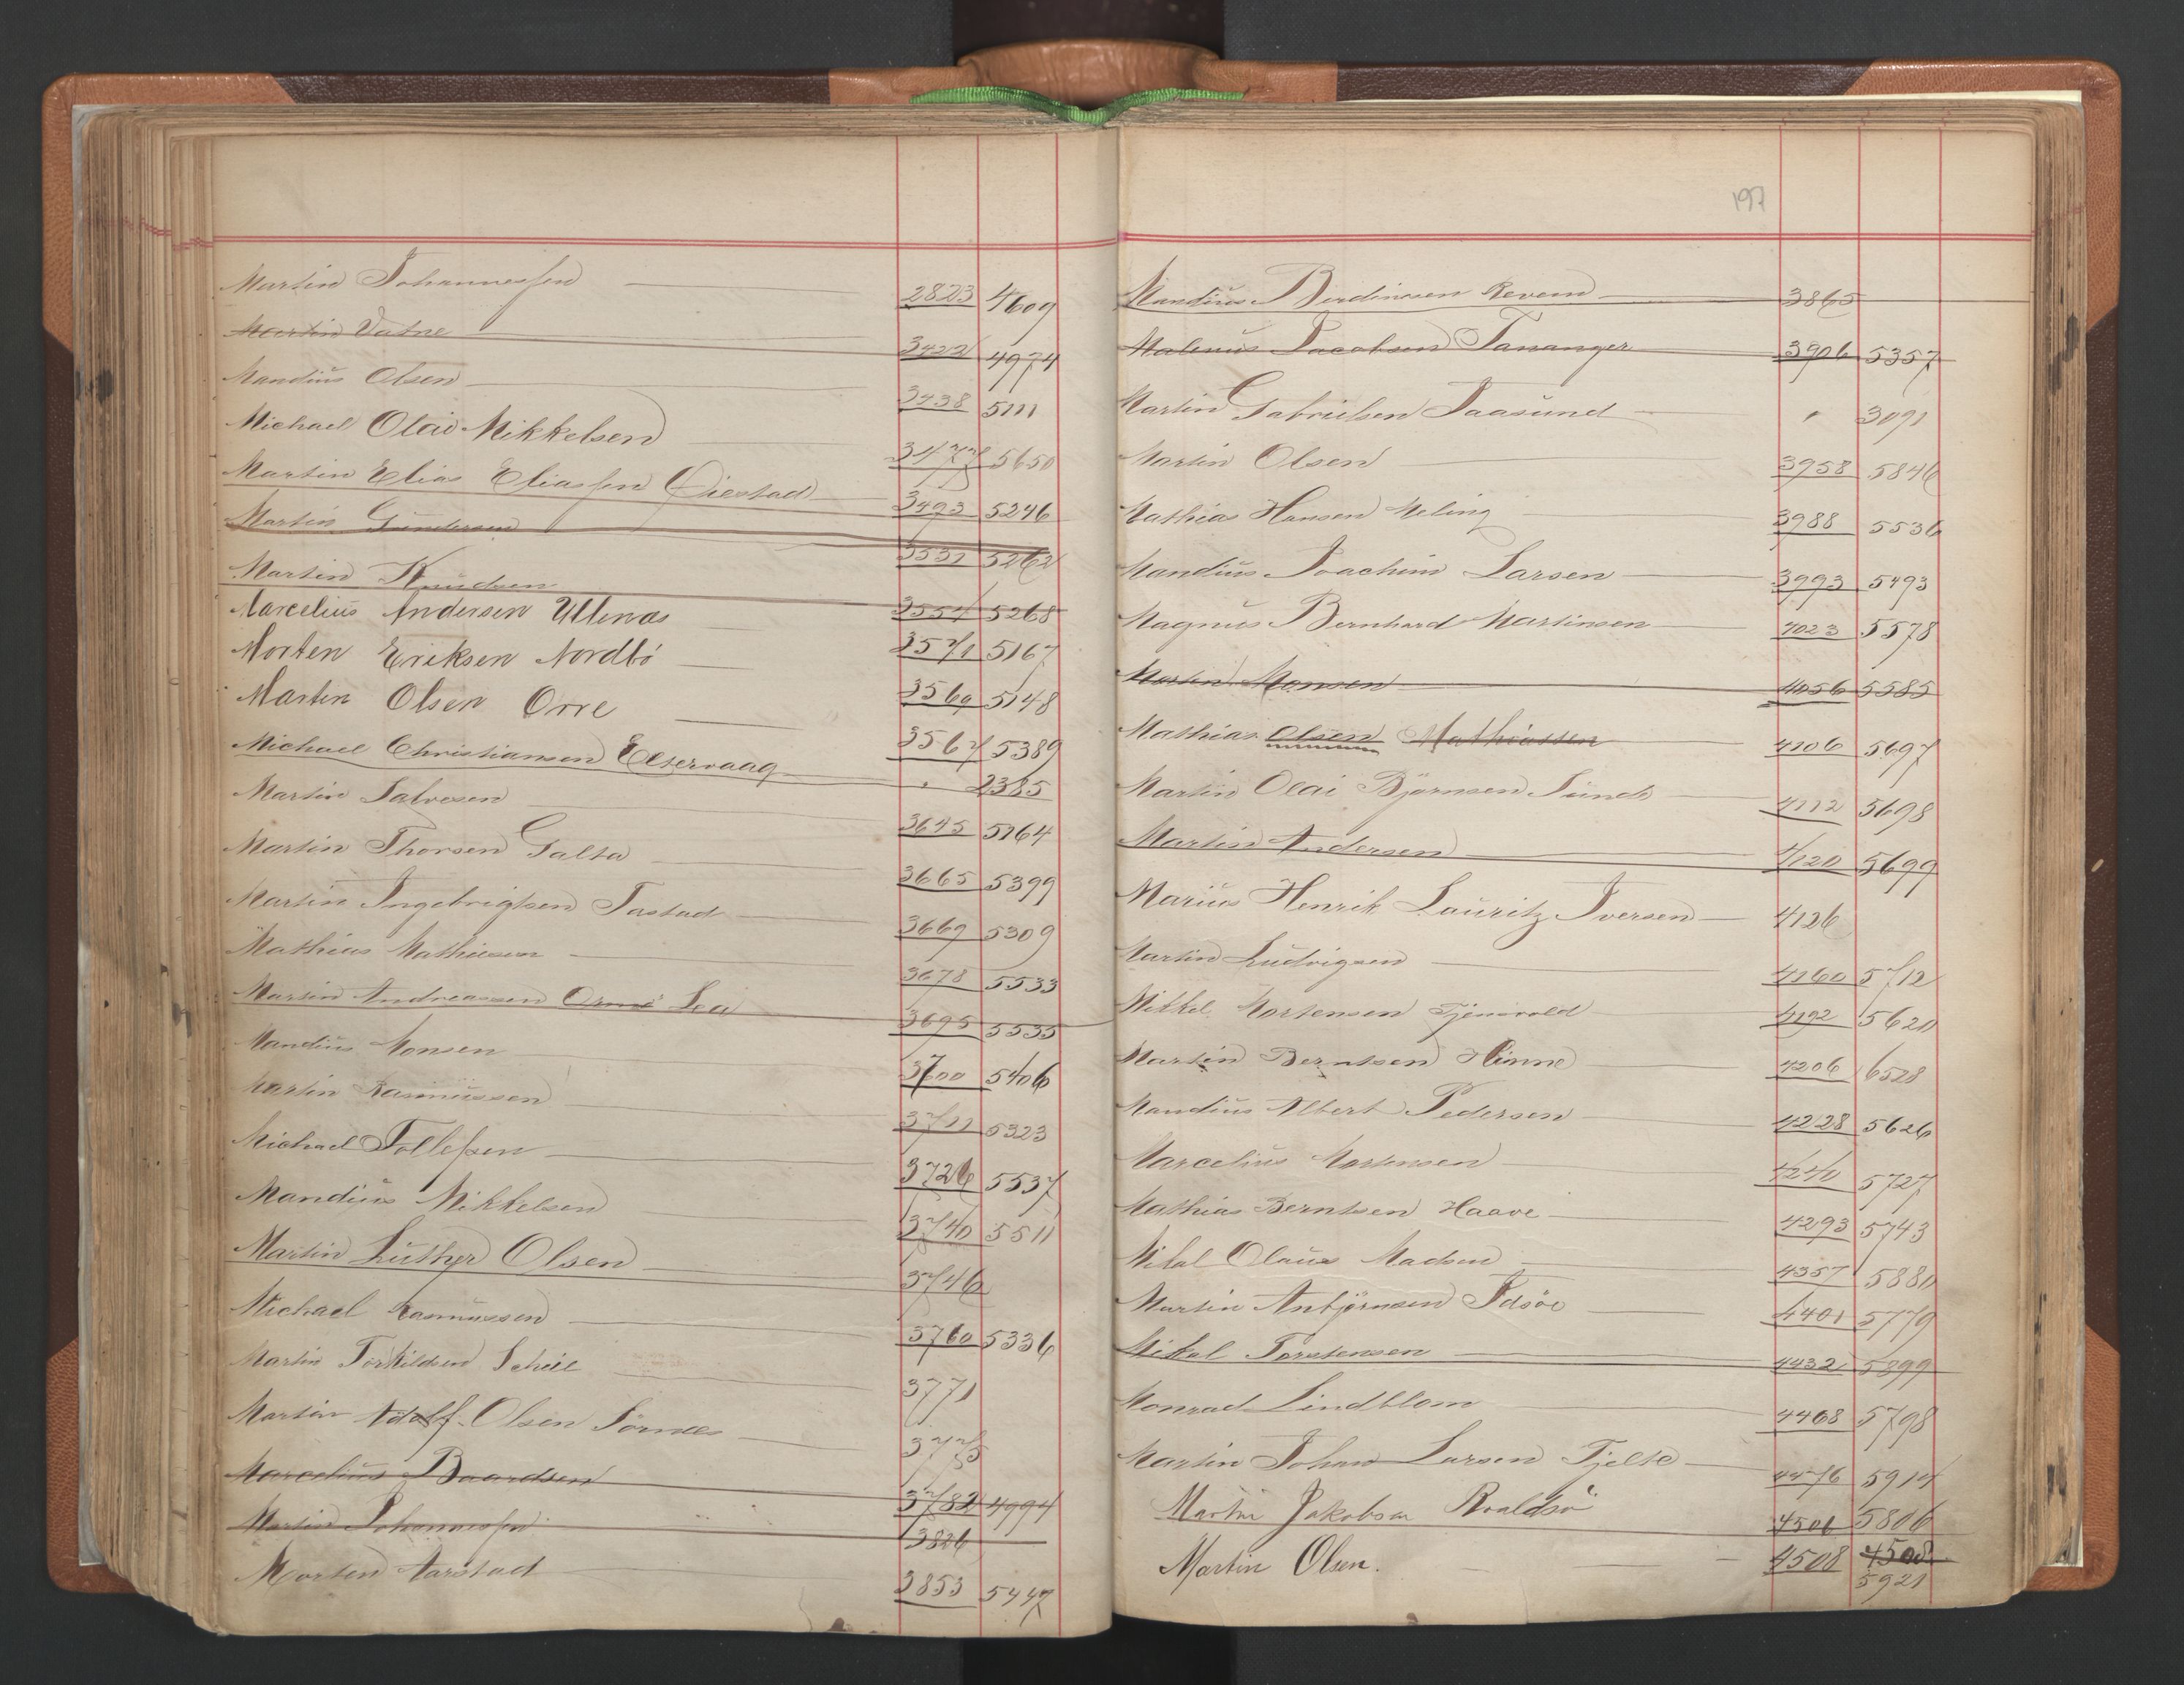 Martin Johannessen 2823 4609
Martin Vatne 3422 4974
Mandius Olsen 3438 5111
Michael Olai Mikkelsen 3477 5650
Martin Elias Eliassen Qiestad 3493 5246
Martin Gundersen 3531 5262
Martin Knudsen 3554 5268
Marcelius Andersen Utlenas 3571 5167
Morten Eriksen Nordbö 3569 5148
Martin Olsen Orre 3567 5389
Michael Christiansen Eltervaag " 2385
Martin Salvesen 3645 5164
Martin Thorsen Galta 3665 5399
Martin Ingebrigtsen Tastad 3669 5309
Mathias Mathiesen 3678 5533
Martin Andreassen Ormö Lea 3695 5535
Mandius Monsen 3700 5406
Martin Rasmussen 3711 5323
Michael Tollefsen 3726 5537
Mandius Mikkelsen 3740 5511
Martin Luther Olsen 3746
Michael Rasmussen 3760 5336
Martin Torkildsen Scheie 3771
Martin Adolf Olsen Sömes 3775
Marcelius Baardsen 3782 4994
Martin Johannessen 3826
Morten Aarstad 3853 5447
197
Mandius Berdinesen Revem 3865
Malenius Jacobsen Tananger 3906 5357
Martin Gabrielsen Taasund " 3091
Martin Olsen 3958 5846
Mathias Hansen Meling 3988 5536
Mandius Joachim Larsen 3993 5493
Magnus Bernhard Martinsen 4023 5578
Martin Monsen 4056 5585
Mathias Olsen Mathiassen 4106 5697
Martin Olai Björnsen Sunde 4112 5698
Martin Andersen 4120 5699
Marius Henrik Lauritz Iversen 4126
Martin Ludvigsen 4160 5712
Mikkel Mortensen Tjensvold 4192 5620
Martin Berntsen Hinne 4206 6528
Mandius Albert Pedersen 4228 5626
Marcelius Mortensen 4240 5727
Mathias Berntsen Haave 4293 5743
Mikal Olaus Madsen 4357 5880
Martin Anbjørnsen Idsöe 4401 5779
Mikal Torstensen 4432 5899
Monrad Lindblom 4468 5798
Martin Johan Larsen Tjelte 4476 5914
Martin Jakobsen Roaldsö 4506 5806
Martin Olsen. 4508 4508
5921